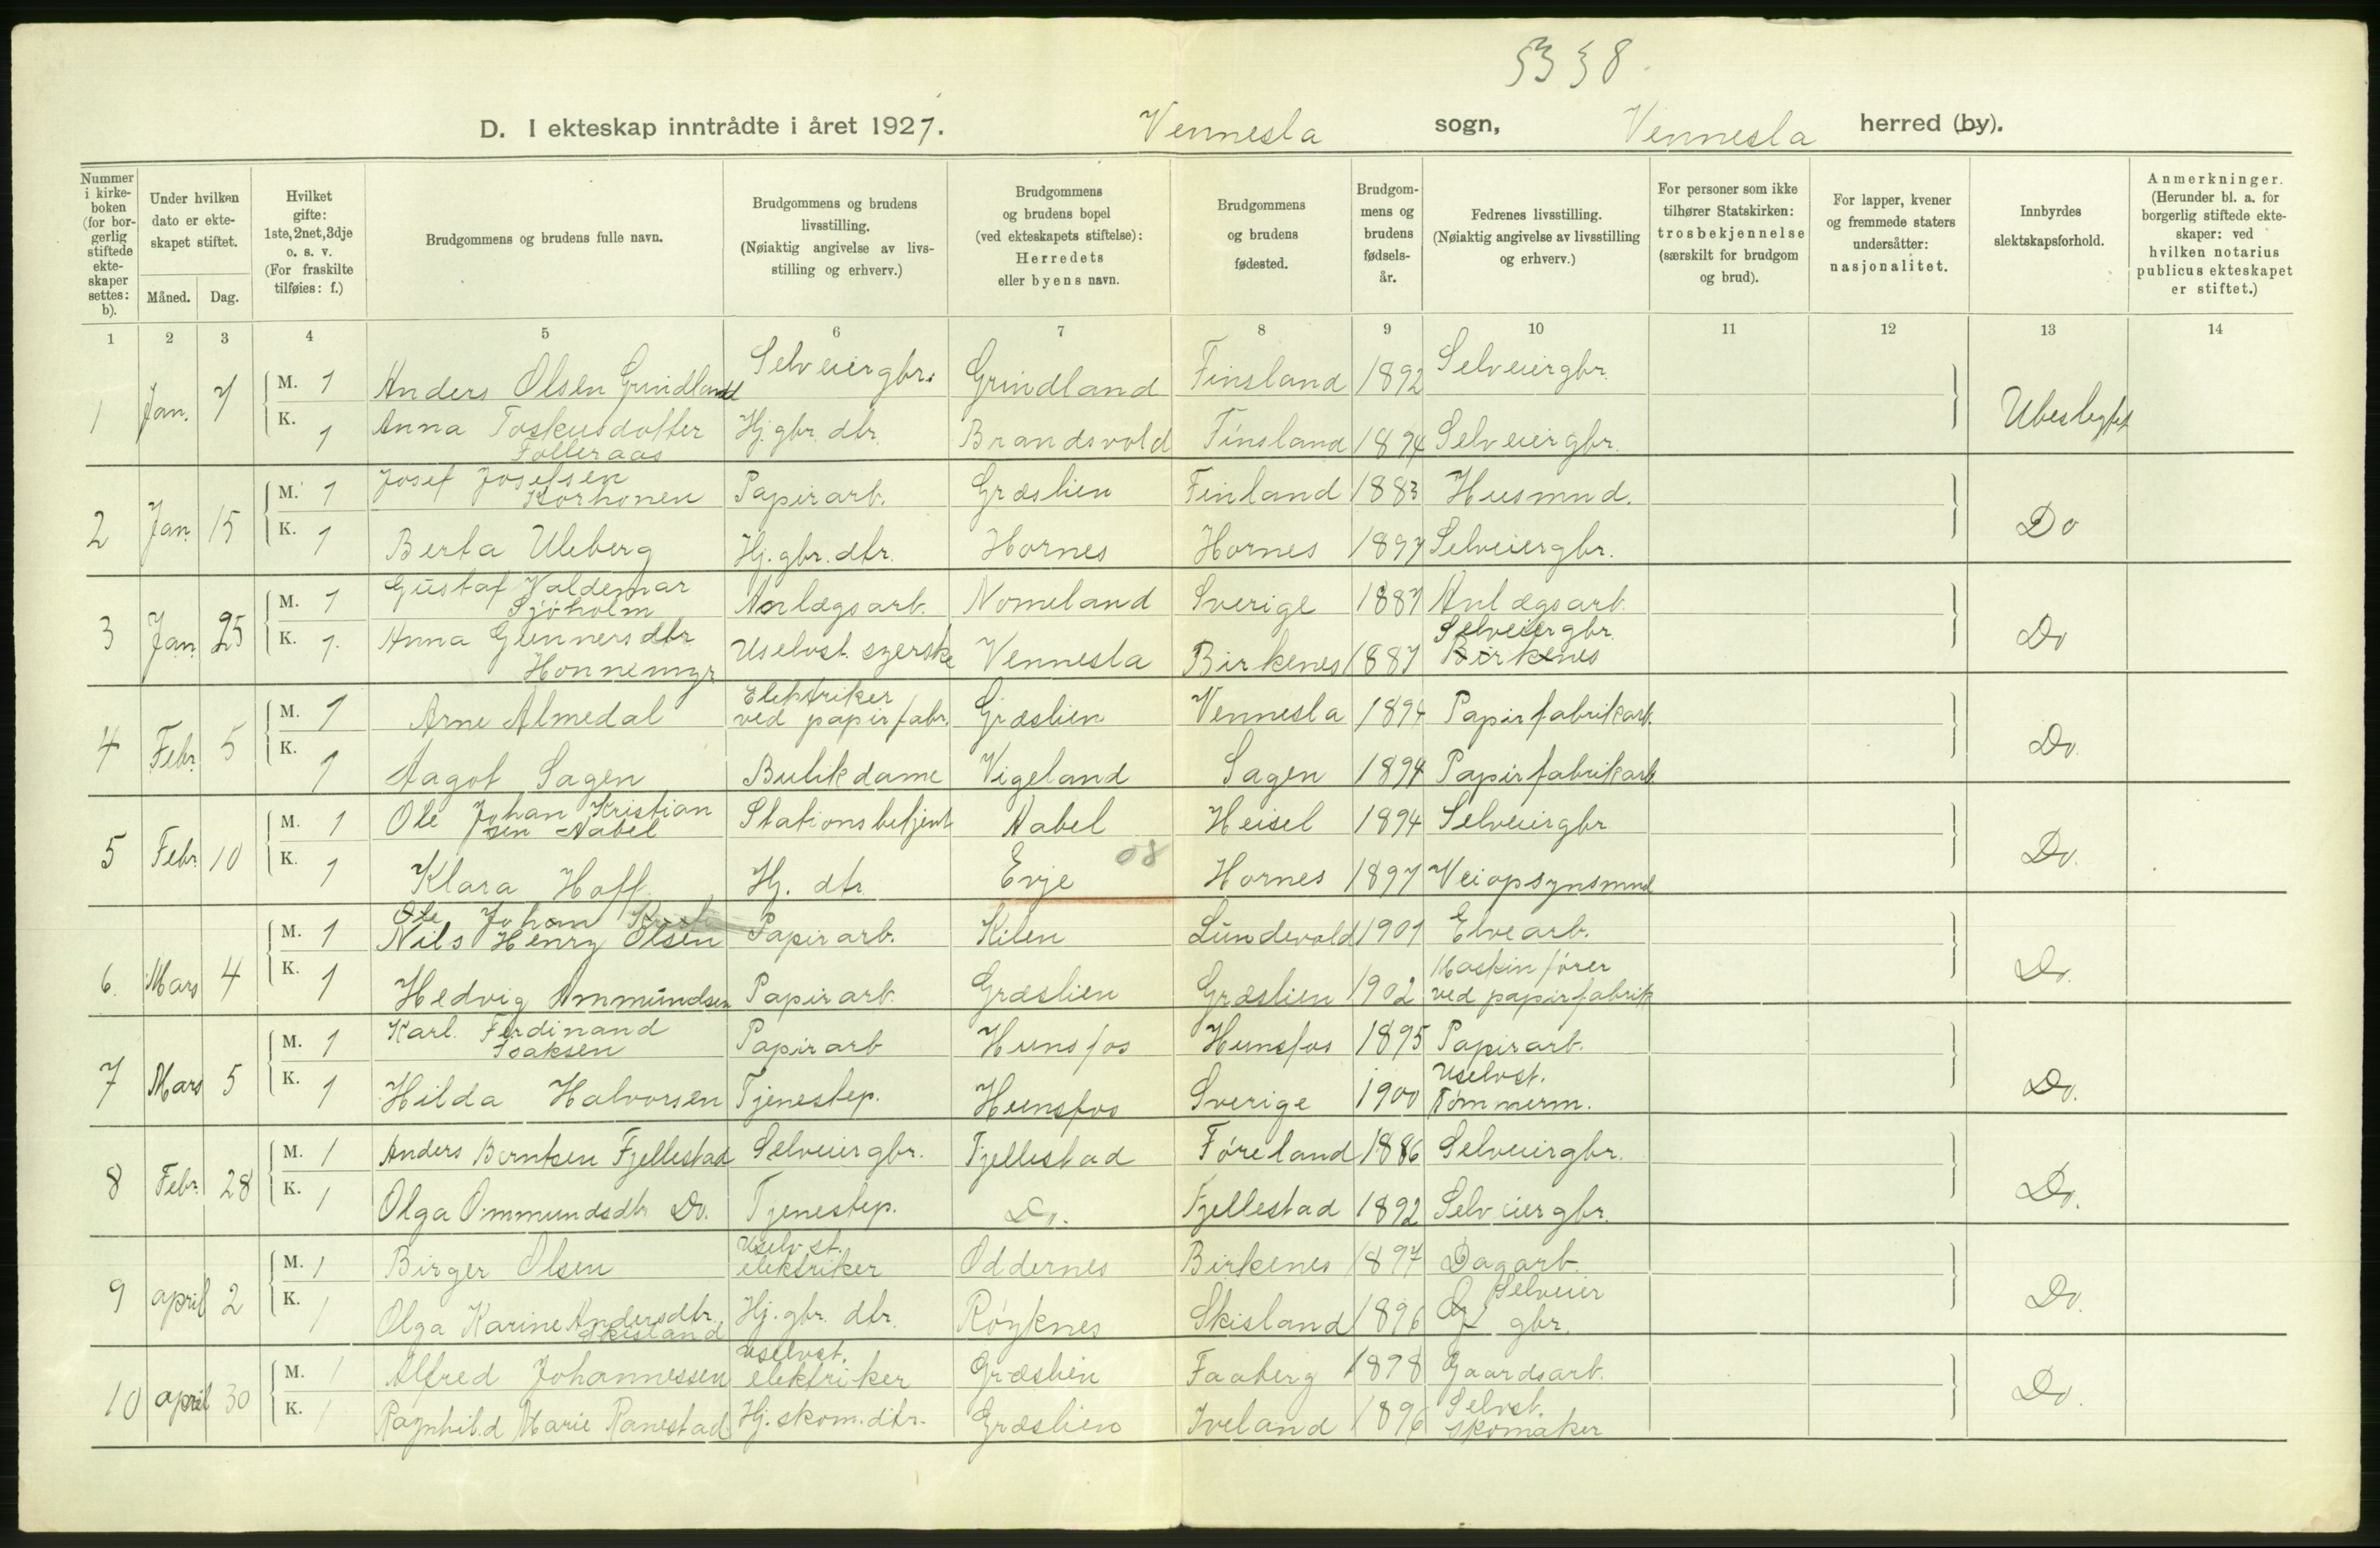 5338
D. I ekteskap inntrådte i året 1927. Vennesla sogn, Vennesla herred (by).
Nummer i kirkeboken (for borgerlig stiftede ekteskaper settes: b).
Under hvilken dato er ekteskapet stiftet.
Måned. Dag.
Hvilket gifte: 1ste, 2net, 3dje o. s. v. (For fraskilte tilføies: f.)
Brudgommens og brudens fulle navn.
Brudgommens og brudens livsstilling. (Nøiaktig angivelse av livsstilling og erhverv.)
Brudgommens og brudens bopel (ved ekteskapets stiftelse): Herredets eller byens navn.
Brudgommens og brudens fødested.
Brudgommens og brudens fødselsår.
Fedrenes livsstilling. (Nøiaktig angivelse av livsstilling og erhverv.)
For personer som ikke tilhører Statskirken: trosbekjennelse (særskilt for brudgom og brud).
For lapper, kvener og fremmede staters undersåtter: nasjonalitet.
Innbyrdes slektskapsforhold.
Anmerkninger. (Herunder bl. a. for borgerlig stiftede ekteskaper: ved hvilken notarius publicus ekteskapet er stiftet.)
1 2 3 4 5 6 7 8 9 10 11 12 13 14
1 Jan. 7 M. 1 Anders Olsen Grindland Selveiergbr. Grindland Finsland 1892 Selveiergbr. Ubeslegtet
K. 1 Anna Toskusdotter Folleraas Hj. gbr. dtr. Brandsvold Finsland 1894 Selveiergbr.
2 Jan. 15 M. 1 Josef Josefsen Korhonen Papirarb. Græslien Finland 1883 Husmnd. Do
K. 1 Berta Uleberg Hj. gbr. dtr. Hornes Hornes 1897 Selveiergbr.
3 Jan. 25 M. 1 Gustaf Valdemar Sjøholm Anlægsarb. Nomeland Sverige 1887 Anlægsarb. Do
K. 1. Anna Gunnersdtr Honnemyr Uselvst. syerske Vennesla Birkenes 1887 Selveiergbr. Birkenes
4 Febr. 5 M. 1 Arne Almedal Elektriker ved papirfabr. Græslien Vennesla 1894 Papirfabrikarb. Do.
K. 1 Aagot Sagen Butikdame Vigeland Sagen 1894 Papirfabrikarb
5 Febr. 10 M. 1 Ole Johan Kristiansen Aabel Stationsbetjent Aabel Heisel 1894 Selveiergbr Do.
K. 1 Klara Hoff Hj. dtr Evje 08 Hornes 1897 Veiopsynsmnd
6. Mars 4 M. 1 Ole Johan Nils Henry Olsen Papirarb. Kilen Lundevold 1901 Elvearb. Do.
K. 1 Hedvig Ammundsen Papirarb. Græslien Græslien 1902 Maskinfører ved papirfabrik
7 Mars 5 M. 1 Karl Ferdinand Isaksen Papirarb Hunsfos Hunsfos 1895 Papirarb. Do.
K. 1 Hilda Halvorsen Tjenestep. Hunsfos Sverige 1900 Uselvst. Tømmerm.
8 Febr. 28 M. 1 Anders Berntsen Fjellestad Selveiergbr. Fjellestad Føreland 1886 Selveiergbr. Do.
K. 1 Olga Ommundsdtr Do. Tjenestep. Do. Fjellestad 1892 Selveiergbr.
9 april 2 M. 1 Birger Olsen Uselvst. elektriker Oddernes Birkenes 1897 Dagarb. Do.
K. 1 Olga Karine Andersdtr. Skisland Hj. gbr. dtr. Røyknes Skisland 1896 Selveier gbr.
10 april 30 M. 1 Alfred Johannessen Uselvst. elektriker Græslien Faaberg 1878 Gaardsarb. Do.
K. 1 Ragnhild Marie Ranestad Hj. skom. dtr. Græslien Iveland 1896 Selvst. skomaker